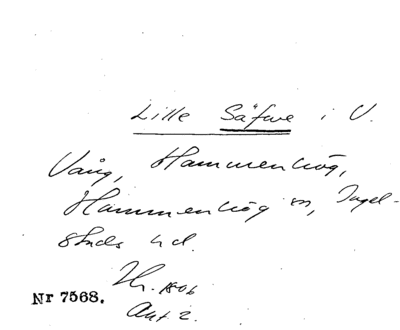 Lille Säfwe i V.
Vång, Hammenhög,
Hammenhög sn, Ingel-
stads hd.
Hr. 1806
Akt 2.
Nr 7568.